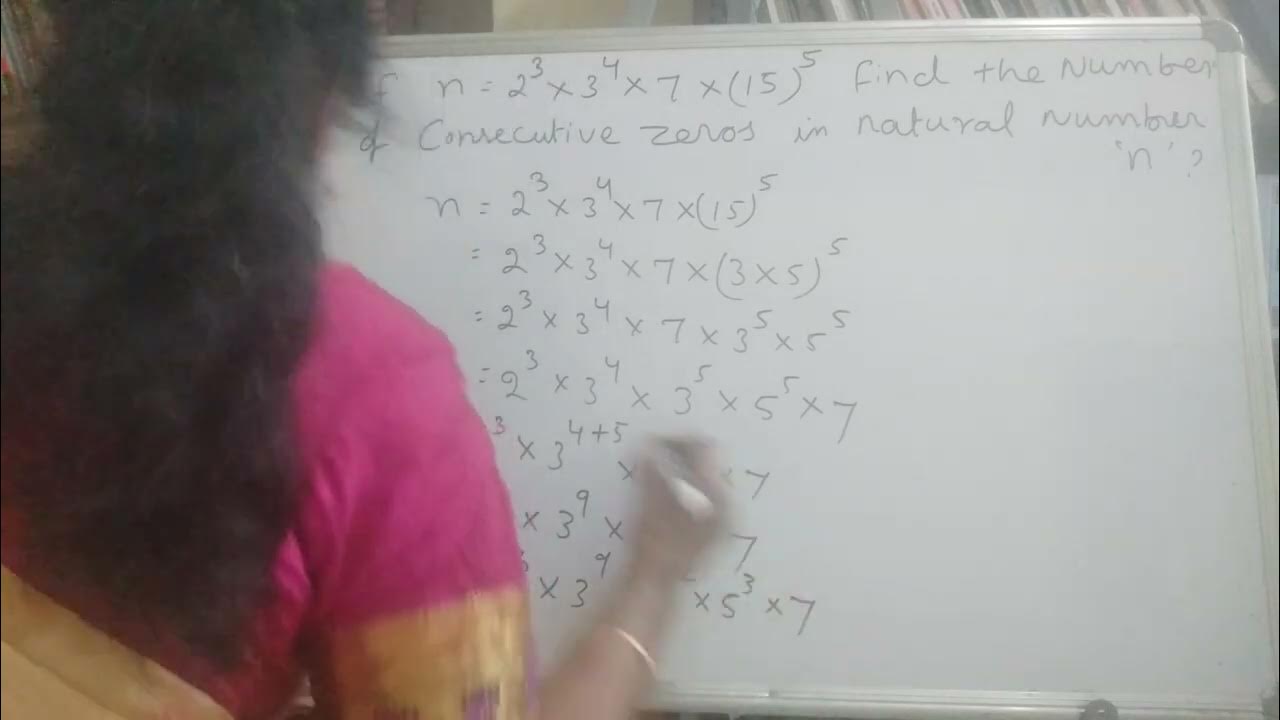 f n = 2³ × 3⁴ × 7 × (15)⁵ find the Number
of Consecutive zeros in natural number
'n' ?
n = 2³ × 3⁴ × 7 × (15)⁵
= 2³ × 3⁴ × 7 × (3 × 5)⁵
= 2³ × 3⁴ × 7 × 3⁵ × 5⁵
= 2³ × 3⁴ × 3⁵ × 5⁵ × 7
³ × 3⁴⁺⁵ × × 7
× 3⁹ × 7
× 3⁹ × 5³ × 7